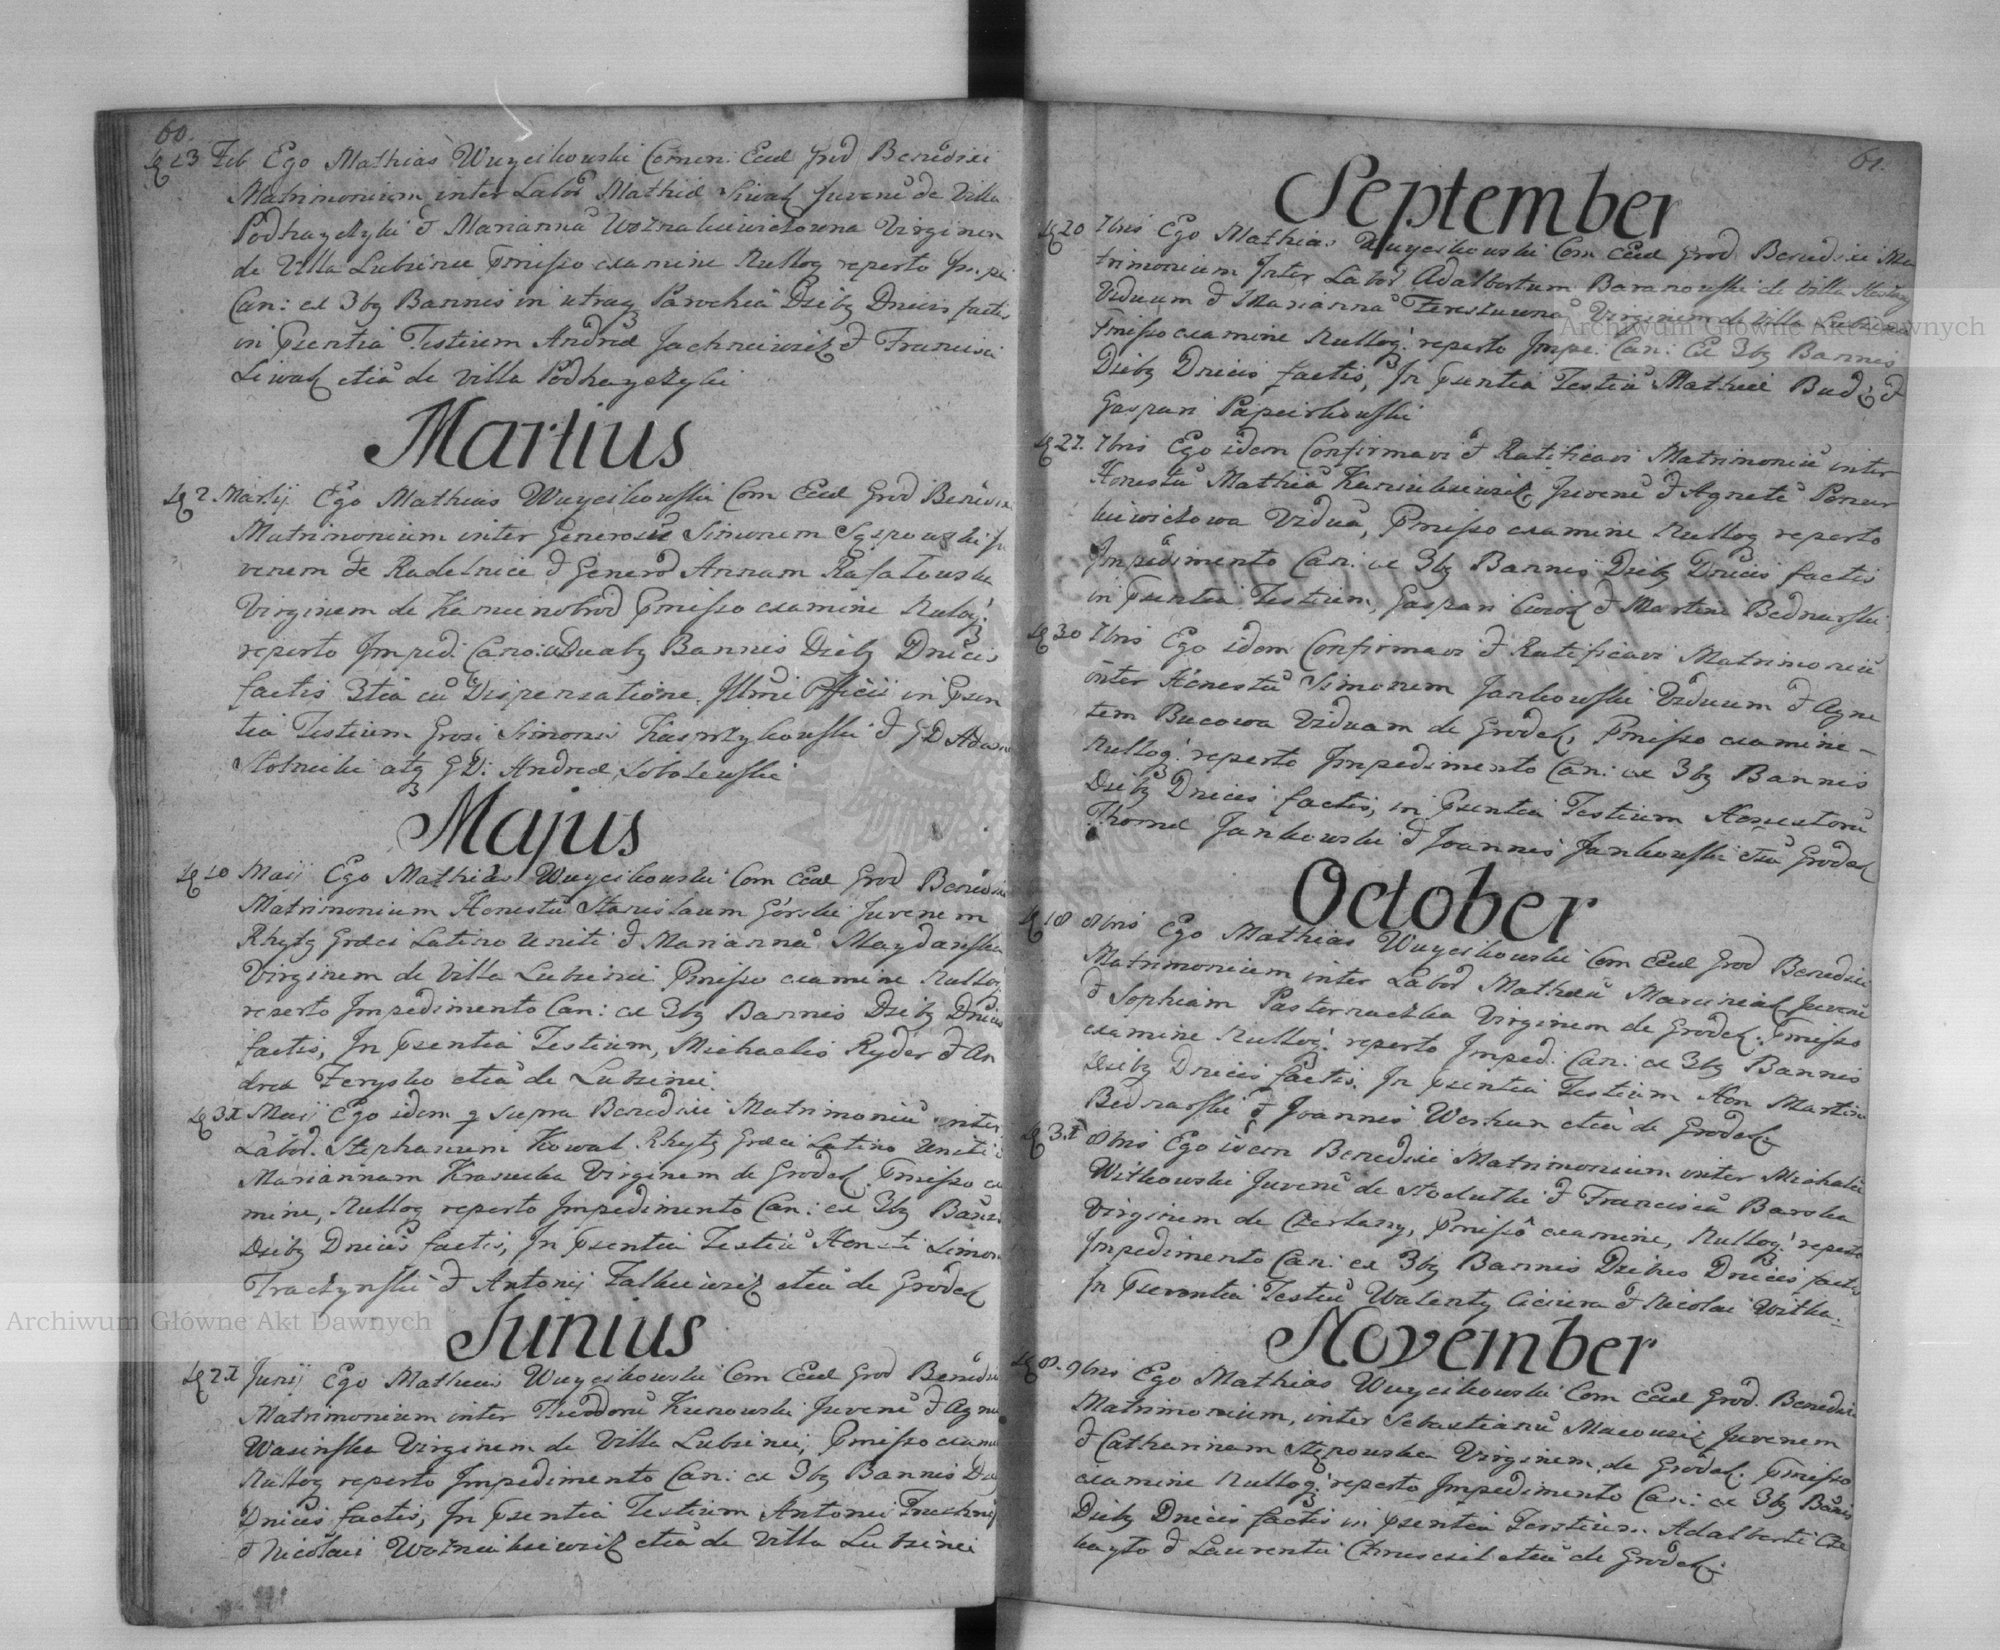 60.
23 Feb Ego Mathias Wuycikowski Comen: Eccl Grod Benedixi
Matrimonium inter Labor Mathiæ Siwak Juvenē de Villa
Podhayczyki & Mariannā Woznakiewiczowna Virginem
de Villa Lubinie Pmisso examine Nulloq reperto Impe
Can: ex 3bq Bannis in utraq Parochia Diebq Dnicis factis
in Psentia Testium Andreæ Jachniewicz & Francisci
Siwak etiā de Villa Podhayczyki
Martius
2 Martij Ego Mathias Wuycikowski Com Eccl Grod Benedixi
Matrimonium inter Generosū Simonem Ju
venem de Radelnice & Generos Annam Rafałowska
Virginem de Kamienobrod Pmisso examine Nuloq:
reperto Imped: Cano: Duabq Bannis Dieb Dnicis
factis 3tia cū Dispensatione Illmi Officii in Psen
tia Testium Grosi Simonis & GD Adam
Słotnicki atq GD: Andreæ
Majus
10 Maij Ego Mathias Wuycikowski Com Eccl Grod Benedixi
Matrimonium Honestū Stanislaum Górski Juvenem
Rhytq Græci Latino Uniti & Mariannā Maydanska
Virginem de Villa Lubinie Pmisso examine Nulloq
reperto Impedimento Can: ex 3bq Bannis Diebq Dnicis
factis, In Psentia Testium, Michaelis Ryder & An
dreæ Ferysko etiā de Lubinie.
31 Maij Ego idem q supra Benedixi Matrimoniū inter
Labor. Stephanum Kowal Rhytq Græci Latino Uniti &
Mariannam Krasucka Virginem de Grodek Pmisso exa
mine, Nulloq reperto Impedimento Can: ex 3bq Banis
Diebq Dnicis factis, In Psentia Testiū Honesti Simon
& Antonij Falkiewicz etiā de Grodek
Junius
21 Junij Ego Mathias Wuycikowski Com Eccl Grod Benedixi
Matrimonium inter Theodorū Kurowski Juvenē & Agne
Wasinska Virginem de Villa Lubinie, Pmisso exam
Nulloq reperto Impedimento Can: ex 3bq Bannis Die
Dnicis factis, In Psentia Testium Antonii
& Nicolai Woznakiewicz etiā de Villa Lubinie
61.
September
20 7bris Ego Mathias Wuycikowski Com Eccl Grod Benedixi Ma
trimonium Inter Labor Adalbertum Baranowski de Villa
Viduum & Mariannā Virginem de Villa Lubinie
Pmisso examine Nulloq: reperto Impe: Can: Ex 3bq Bannis
Diebq Dnicis factis, In Psentia Testiū Mathiæ &
Gaspari
27. 7bris Ego idem Confirmavi & Ratificavi Matrimoniū inter
Honestū Mathiā Juvenē & Agnetē Ponur
kiewiczowa Viduā, Pmisso examine Nulloq reperto
Impedimento Can: ex 3bq Bannis Diebq Dnicis factis
in Psentia Testium, Gaspari & Martini Bednarski
30 7bris Ego idem Confirmavi & Ratificavi Matrimoniū
inter Honestū Simonem Jankowski Viduum & Agne
tem Bucowa Viduam de Grodek, Pmisso examine
Nulloq: reperto Impedimento Can: ex 3bq Bannis
Diebq Dnicis factis, in Psentia Testium Honestorū
Thomæ Jankowski & Joannis Jankowski etiā Grodek
October
18 8bris Ego Mathias Wuycikowski Com Eccl Grod Benedixi
Matrimonium inter Labor Mathiā Marciniak Juvenē
& Sophiam Pasternacka Virginem de Grodek: Pmisso
examine Nulloq: reperto Imped: Can: ex 3bq Bannis
Diebq Dnicis factis, In Psentia Testium Hon Martini
Bednarski & Joannis Workun etiā de Grodek
31 8bris Ego idem Benedixi Matrimonium inter Michaelē
Witkowski Juvenē de & Franciscā Barska
Virginem de Czerlany, Pmisso examine, Nulloq: reperto
Impedimento Can: ex 3bq Bannis Diebus Dnicis factis
In Psentia Testiū Walenty & Nicolai
November
8. 9bris Ego Mathias Wuycikowski Com Eccl Grod. Benedixi
Matrimonium, inter Sebastianū Juvenem
& Catharinam Virginem de Grodek: Pmisso
examine Nulloq: reperto Impedimento Can: ex 3bq Banis
Diebq Dnicis factis in Psentia Testium Adalberti
& Laurentii etiā de Grodek:
Archiwum Główne Akt Dawnych
Archiwum Główne Akt Dawnych